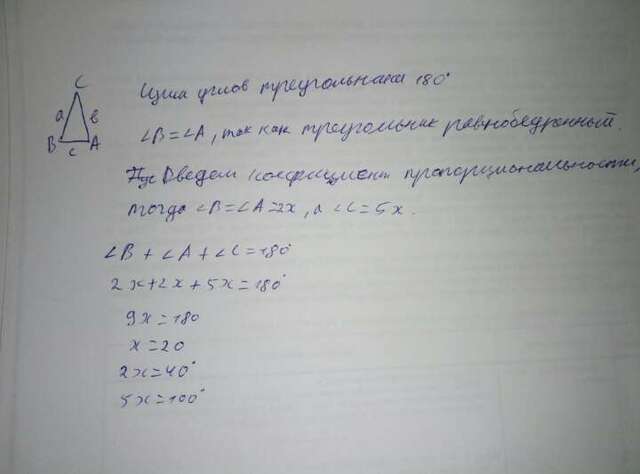 C
a в
B c A
Сума углов треугольника 180°
∠B=∠A, так как треугольник равнобедренный.
Введем коэффициент пропорциональности,
тогда ∠B=∠A=2x, а ∠C=5x.
∠B+∠A+∠C=180°
2x+2x+5x=180°
9x=180
x=20
2x=40°
5x=100°